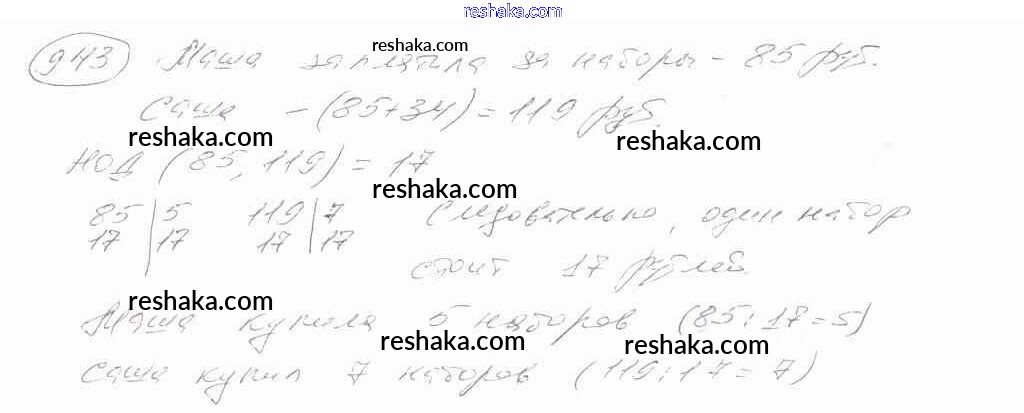 reshaka.com
943 Маша заплатила за наборы - 85 руб.
reshaka.com
Саша - (85+34) = 119 руб.
reshaka.com reshaka.com
НОД (85, 119) = 17
reshaka.com
85 | 5 119 | 7 Следовательно, один набор
17 | 17 17 | 17
стоит 17 рублей.
reshaka.com
Маша купила 5 наборов (85:17=5)
reshaka.com reshaka.com
Саша купил 7 наборов (119:17=7)